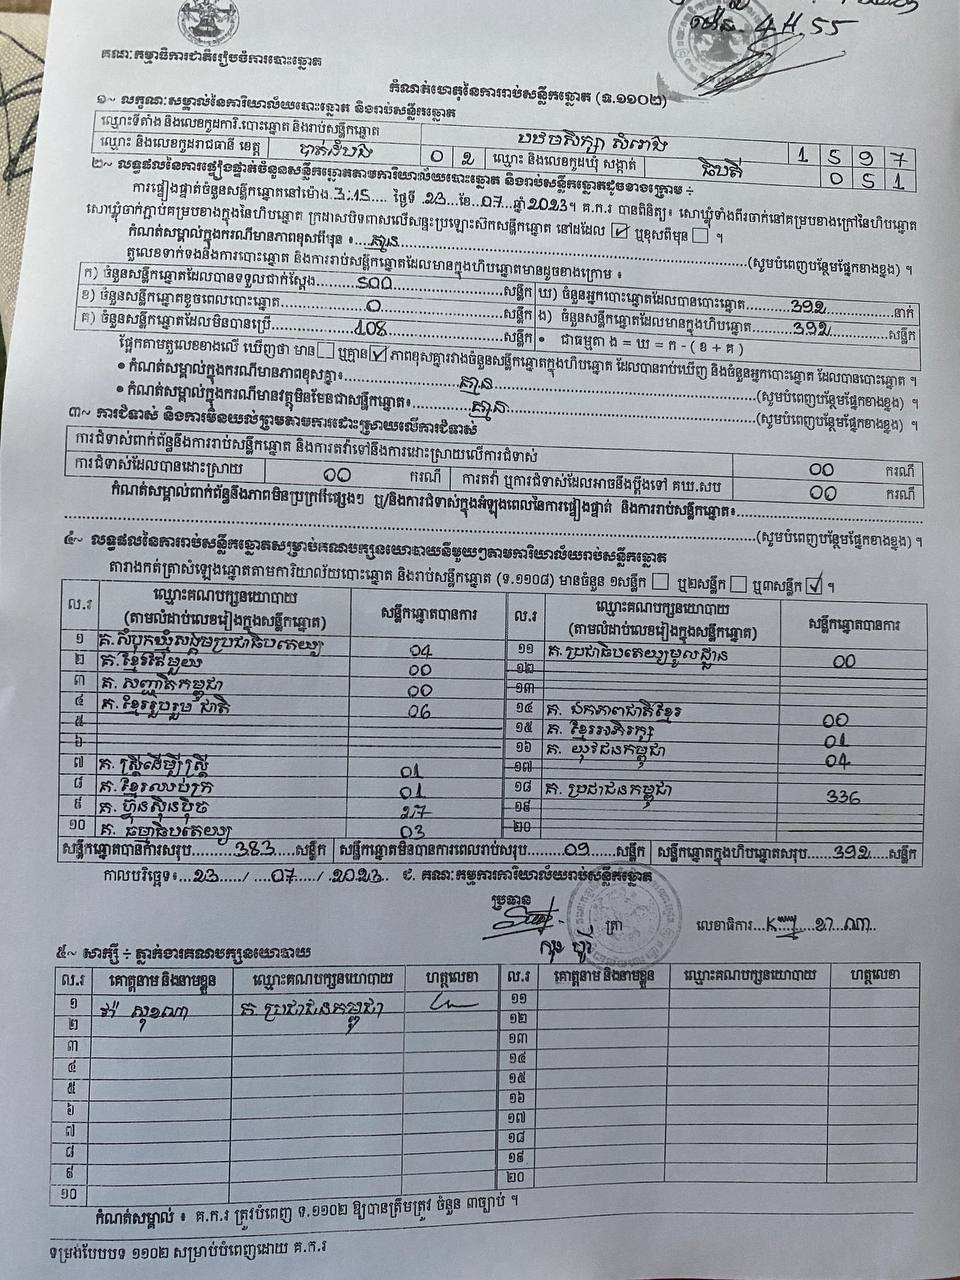 គណៈកម្មាធិការជាតិរៀបចំការបោះឆ្នោត
កំណត់ហេតុនៃការរាប់សន្លឹកឆ្នោត (ទ.១១០២)
១~ លក្ខណៈសម្គាល់នៃការិយាល័យបោះឆ្នោត និងរាប់សន្លឹកឆ្នោត
ឈ្មោះទីតាំង និងលេខកូដការិ.បោះឆ្នោត និងរាប់សន្លឹកឆ្នោត បឋមសិក្សា សំរោង 1 5 9 7
ឈ្មោះ និងលេខកូដរាជធានី ខេត្ត បាត់ដំបង 0 2 ឈ្មោះ និងលេខកូដឃុំ សង្កាត់ 0 5 1
២~ លទ្ធផលនៃការផ្ទៀងផ្ទាត់ចំនួនសន្លឹកឆ្នោតតាមការិយាល័យបោះឆ្នោត និងរាប់សន្លឹកឆ្នោតដូចខាងក្រោម ÷
ការផ្ទៀងផ្ទាត់ចំនួនសន្លឹកឆ្នោតនៅម៉ោង 3:15 ថ្ងៃទី 23 ខែ 07 ឆ្នាំ 2023។ គ.ក.រ បានពិនិត្យ៖ សោឃ្លុំទាំងពីរចាក់នៅគម្របខាងក្រៅនៃហិបឆ្នោត
សោឃ្លុំចាក់ភ្ជាប់គម្របខាងក្នុងនៃហិបឆ្នោត ក្រដាសបិទពាសលើសន្ទះប្រឡោះស៊កសន្លឹកឆ្នោត នៅដដែល ☑ ឬខុសពីមុន ☐ ។
កំណត់សម្គាល់ក្នុងករណីមានភាពខុសពីមុន ៖ គ្មាន (សូមបំពេញបន្ថែមផ្នែកខាងខ្នង) ។
តួលេខទាក់ទងនឹងការបោះឆ្នោត និងការរាប់សន្លឹកឆ្នោតដែលមានក្នុងហិបឆ្នោតមានដូចខាងក្រោម ៖
ក) ចំនួនសន្លឹកឆ្នោតដែលបានទទួលជាក់ស្តែង 500 សន្លឹក ឃ) ចំនួនអ្នកបោះឆ្នោតដែលបានបោះឆ្នោត 392 នាក់
ខ) ចំនួនសន្លឹកឆ្នោតខូចពេលបោះឆ្នោត 0 សន្លឹក ង) ចំនួនសន្លឹកឆ្នោតដែលមានក្នុងហិបឆ្នោត 392 សន្លឹក
គ) ចំនួនសន្លឹកឆ្នោតដែលមិនបានប្រើ 108 សន្លឹក • ជាធម្មតា ង = ឃ = ក - ( ខ + គ )
ផ្អែកតាមតួលេខខាងលើ ឃើញថា មាន ☐ ឬគ្មាន ☑ ភាពខុសគ្នារវាងចំនួនសន្លឹកឆ្នោតក្នុងហិបឆ្នោត ដែលបានរាប់ឃើញ និងចំនួនអ្នកបោះឆ្នោត ដែលបានបោះឆ្នោត ។
• កំណត់សម្គាល់ក្នុងករណីមានភាពខុសគ្នា៖ គ្មាន (សូមបំពេញបន្ថែមផ្នែកខាងខ្នង) ។
• កំណត់សម្គាល់ក្នុងករណីមានវត្ថុមិនមែនជាសន្លឹកឆ្នោត៖ គ្មាន (សូមបំពេញបន្ថែមផ្នែកខាងខ្នង) ។
៣~ ការជំទាស់ និងការមិនយល់ព្រមតាមការដោះស្រាយលើការជំទាស់
ការជំទាស់ពាក់ព័ន្ធនឹងការរាប់សន្លឹកឆ្នោត និងការតវ៉ាទៅនឹងការដោះស្រាយលើការជំទាស់ 00 ករណី
ការជំទាស់ដែលបានដោះស្រាយ 00 ករណី ការតវ៉ា ឬការជំទាស់ដែលអាចនឹងប្តឹងទៅ គឃ.សប 00 ករណី
កំណត់សម្គាល់ពាក់ព័ន្ធនឹងភាពមិនប្រក្រតីផ្សេងៗ ឬ/និងការជំទាស់ក្នុងអំឡុងពេលនៃការផ្ទៀងផ្ទាត់ និងការរាប់សន្លឹកឆ្នោត៖
(សូមបំពេញបន្ថែមផ្នែកខាងខ្នង) ។
៤~ លទ្ធផលនៃការរាប់សន្លឹកឆ្នោតសម្រាប់គណបក្សនយោបាយនីមួយៗតាមការិយាល័យរាប់សន្លឹកឆ្នោត
តារាងកត់ត្រាសំឡេងឆ្នោតតាមការិយាល័យបោះឆ្នោត និងរាប់សន្លឹកឆ្នោត (ទ.១១០៨) មានចំនួន ១សន្លឹក ☐ ឬ២សន្លឹក ☐ ឬ៣សន្លឹក ☑ ។
ល.រ ឈ្មោះគណបក្សនយោបាយ (តាមលំដាប់លេខរៀងក្នុងសន្លឹកឆ្នោត) សន្លឹកឆ្នោតបានការ ល.រ ឈ្មោះគណបក្សនយោបាយ (តាមលំដាប់លេខរៀងក្នុងសន្លឹកឆ្នោត) សន្លឹកឆ្នោតបានការ
១ គ.សំបុកឃ្មុំសង្គមប្រជាធិបតេយ្យ 04 ១១ គ.ប្រជាធិបតេយ្យមូលដ្ឋាន 00
២ គ.ខ្មែរតែមួយ 00 ១២
៣ គ. សញ្ជាតិកម្ពុជា 00 ១៣
៤ គ.ខ្មែររួបរួមជាតិ 06 ១៤ គ. ឯកភាពជាតិខ្មែរ 00
៥ ១៥ គ. ខ្មែរអភិរក្ស 01
៦ ១៦ គ. យុវជនកម្ពុជា 04
៧ គ. ស្ត្រីដើម្បីស្ត្រី 01 ១៧
៨ គ.ខ្មែរឈប់ក្រ 01 ១៨ គ. ប្រជាជនកម្ពុជា 336
៩ គ. ហ៊្វុនស៊ិនប៉ិច 27 ១៩
១០ គ. ធម្មាធិបតេយ្យ 03 ២០
សន្លឹកឆ្នោតបានការសរុប 383 សន្លឹក សន្លឹកឆ្នោតមិនបានការពេលរាប់សរុប 09 សន្លឹក សន្លឹកឆ្នោតក្នុងហិបឆ្នោតសរុប 392 សន្លឹក
កាលបរិច្ឆេទ៖ 23 / 07 / 2023 ជ. គណៈកម្មការការិយាល័យរាប់សន្លឹកឆ្នោត
ប្រធាន
ត្រា
លេខាធិការ
៥~ សាក្សី ÷ ភ្នាក់ងារគណបក្សនយោបាយ
ល.រ គោត្តនាម និងនាមខ្លួន ឈ្មោះគណបក្សនយោបាយ ហត្ថលេខា ល.រ គោត្តនាម និងនាមខ្លួន ឈ្មោះគណបក្សនយោបាយ ហត្ថលេខា
១ គ. ប្រជាជនកម្ពុជា ១១
២ ១២
៣ ១៣
៤ ១៤
៥ ១៥
៦ ១៦
៧ ១៧
៨ ១៨
៩ ១៩
១០ ២០
កំណត់សម្គាល់ ៖ គ.ក.រ ត្រូវបំពេញ ទ.១១០២ ឱ្យបានត្រឹមត្រូវ ចំនួន ៣ច្បាប់ ។
ទម្រង់បែបបទ ១១០២ សម្រាប់បំពេញដោយ គ.ក.រ